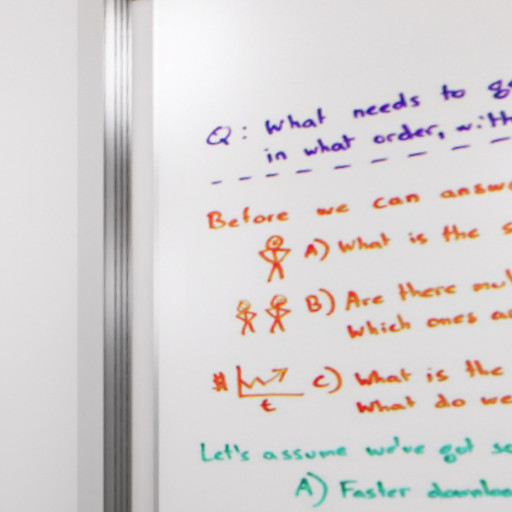 Q: What needs to
in what order,
Before we can
A) What is the
B) Are there
Which ones
$
t
C) What is the
What do we
Let's assume we've got
A) Faster